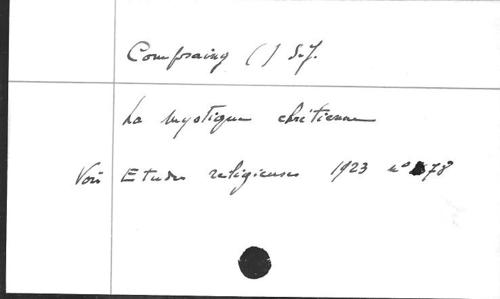 Compaing ( ) S.J.
La mystique chrétienne
Voir Etudes religieuses 1923 n° 78